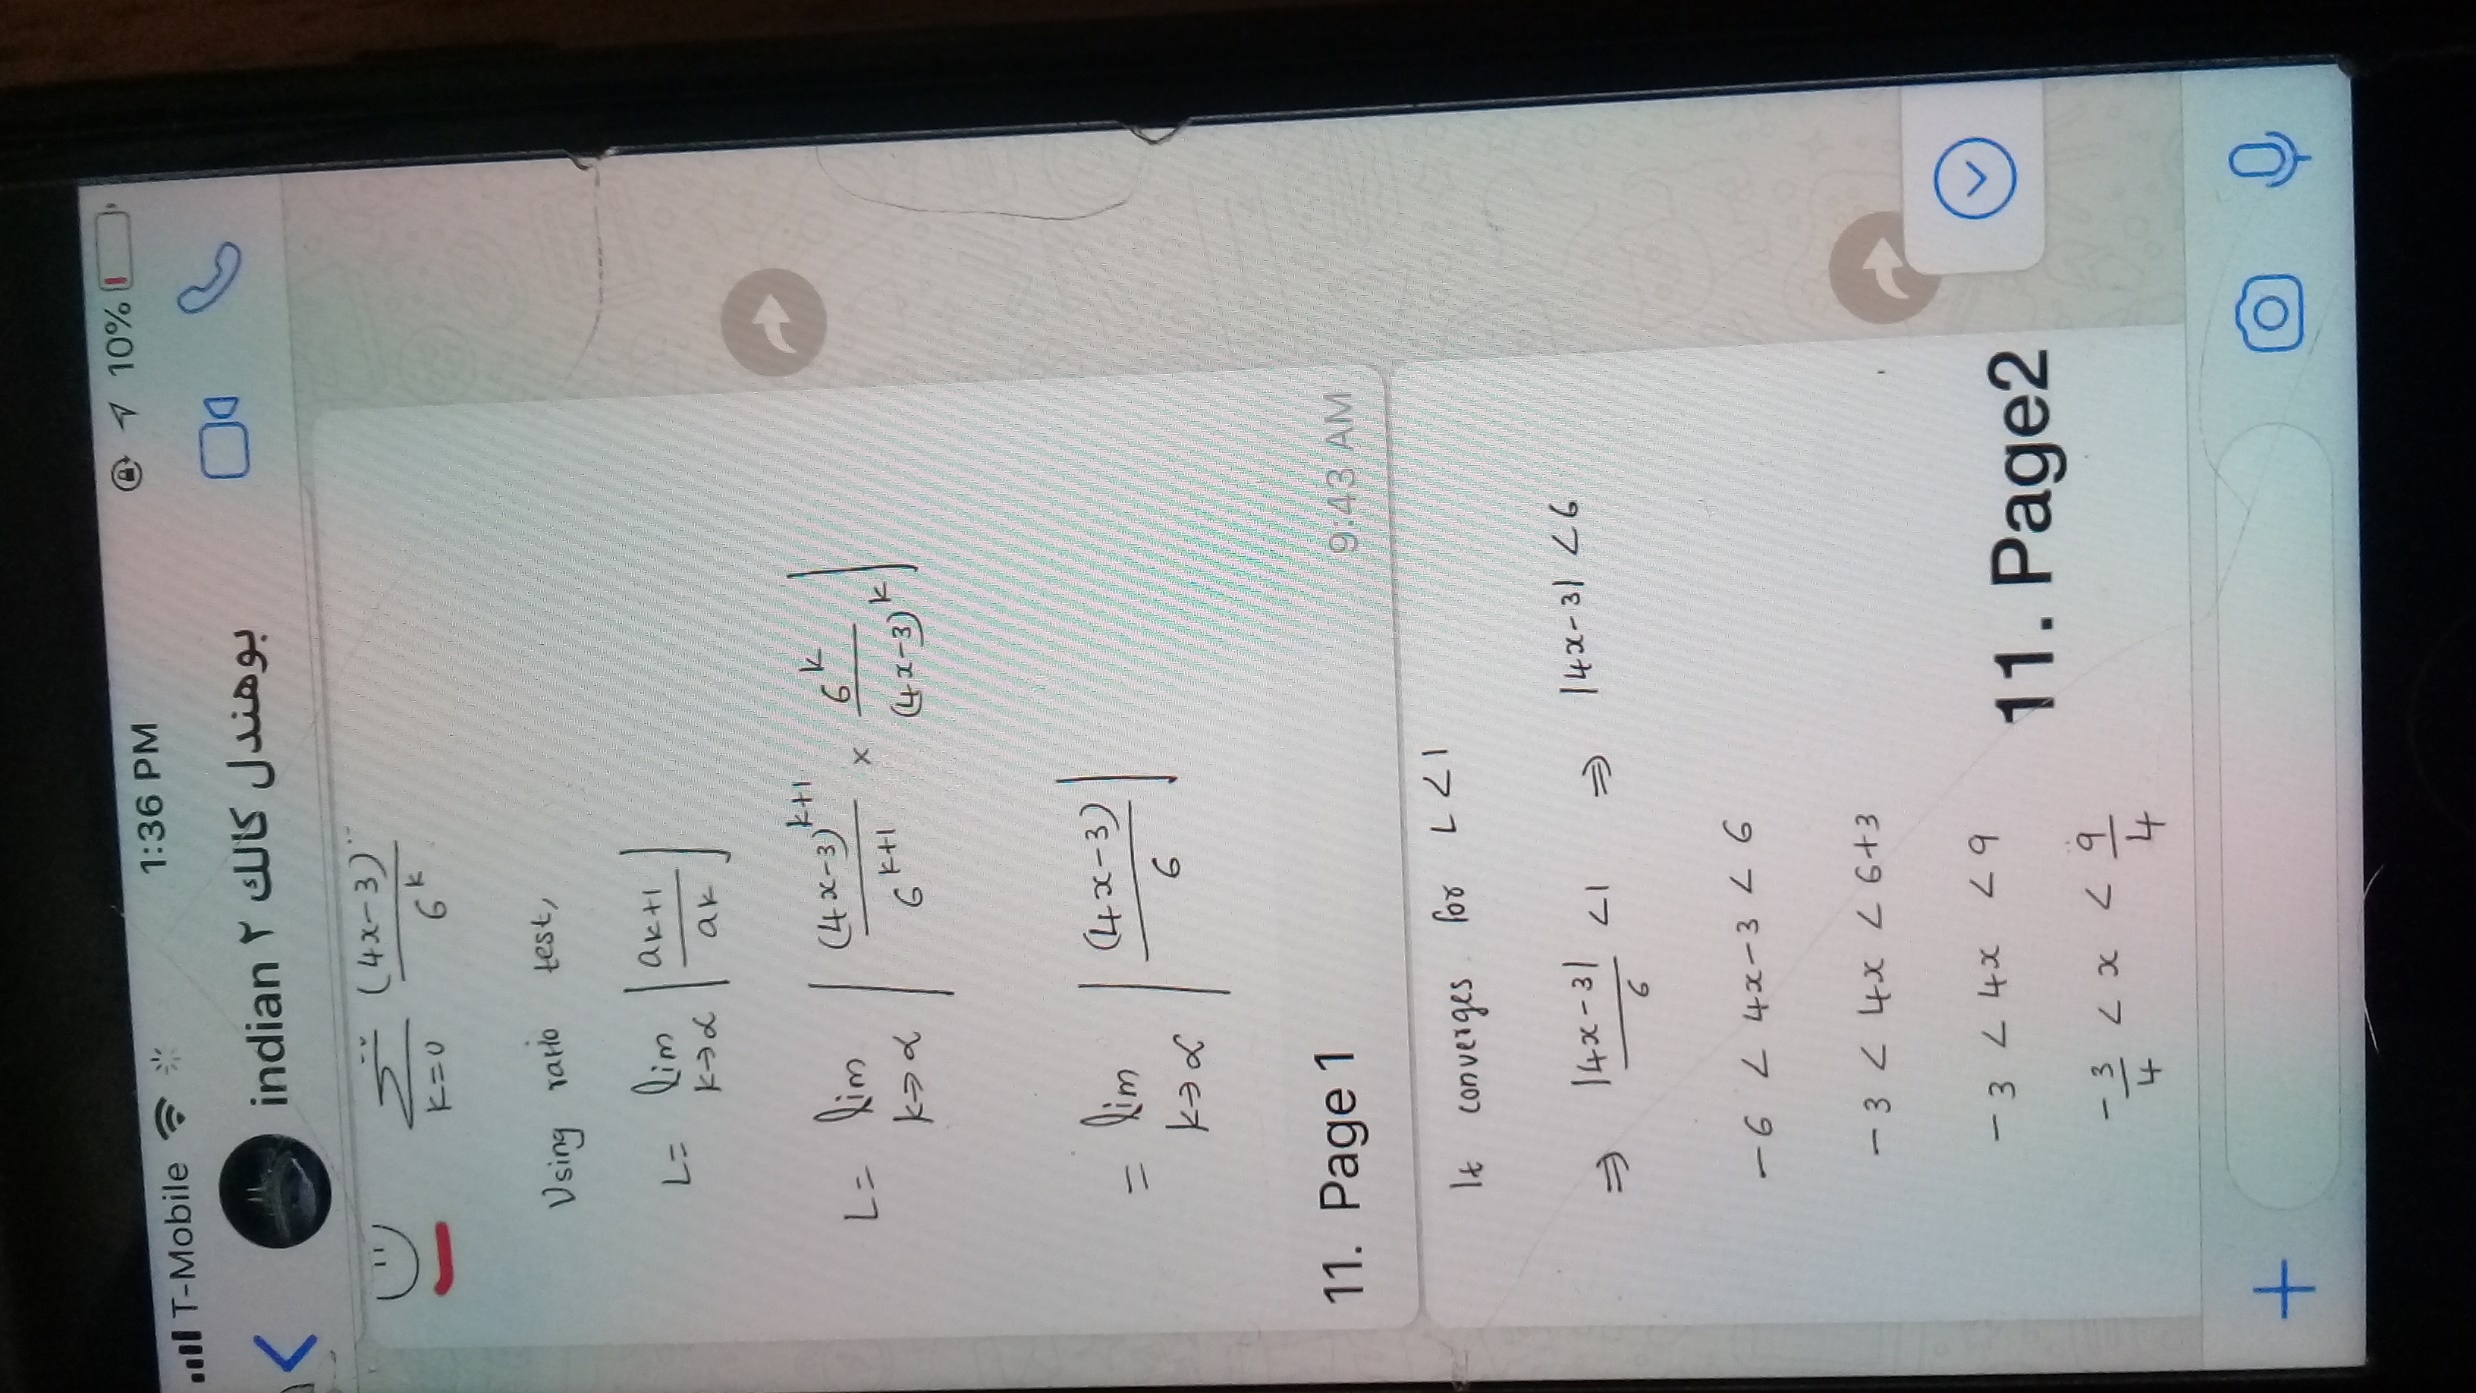 T-Mobile 1:36 PM 10%
indian ٢ بوهندل كالك
∑ (4x-3)¨ / 6^k
k=0
Using ratio test,
L= lim k→∝ | ak+1 / ak |
L= lim k→∝ | (4x-3)^k+1 / 6^k+1 × 6^k / (4x-3)^k |
= lim k→∝ | (4x-3) / 6 |
11. Page 1
9:43 AM
It converges for L<1
⇒ |4x-3| / 6 <1 ⇒ |4x-3| <6
-6 < 4x-3 < 6
-3 < 4x < 6+3
-3 < 4x < 9
-3/4 < x < 9/4
11. Page2